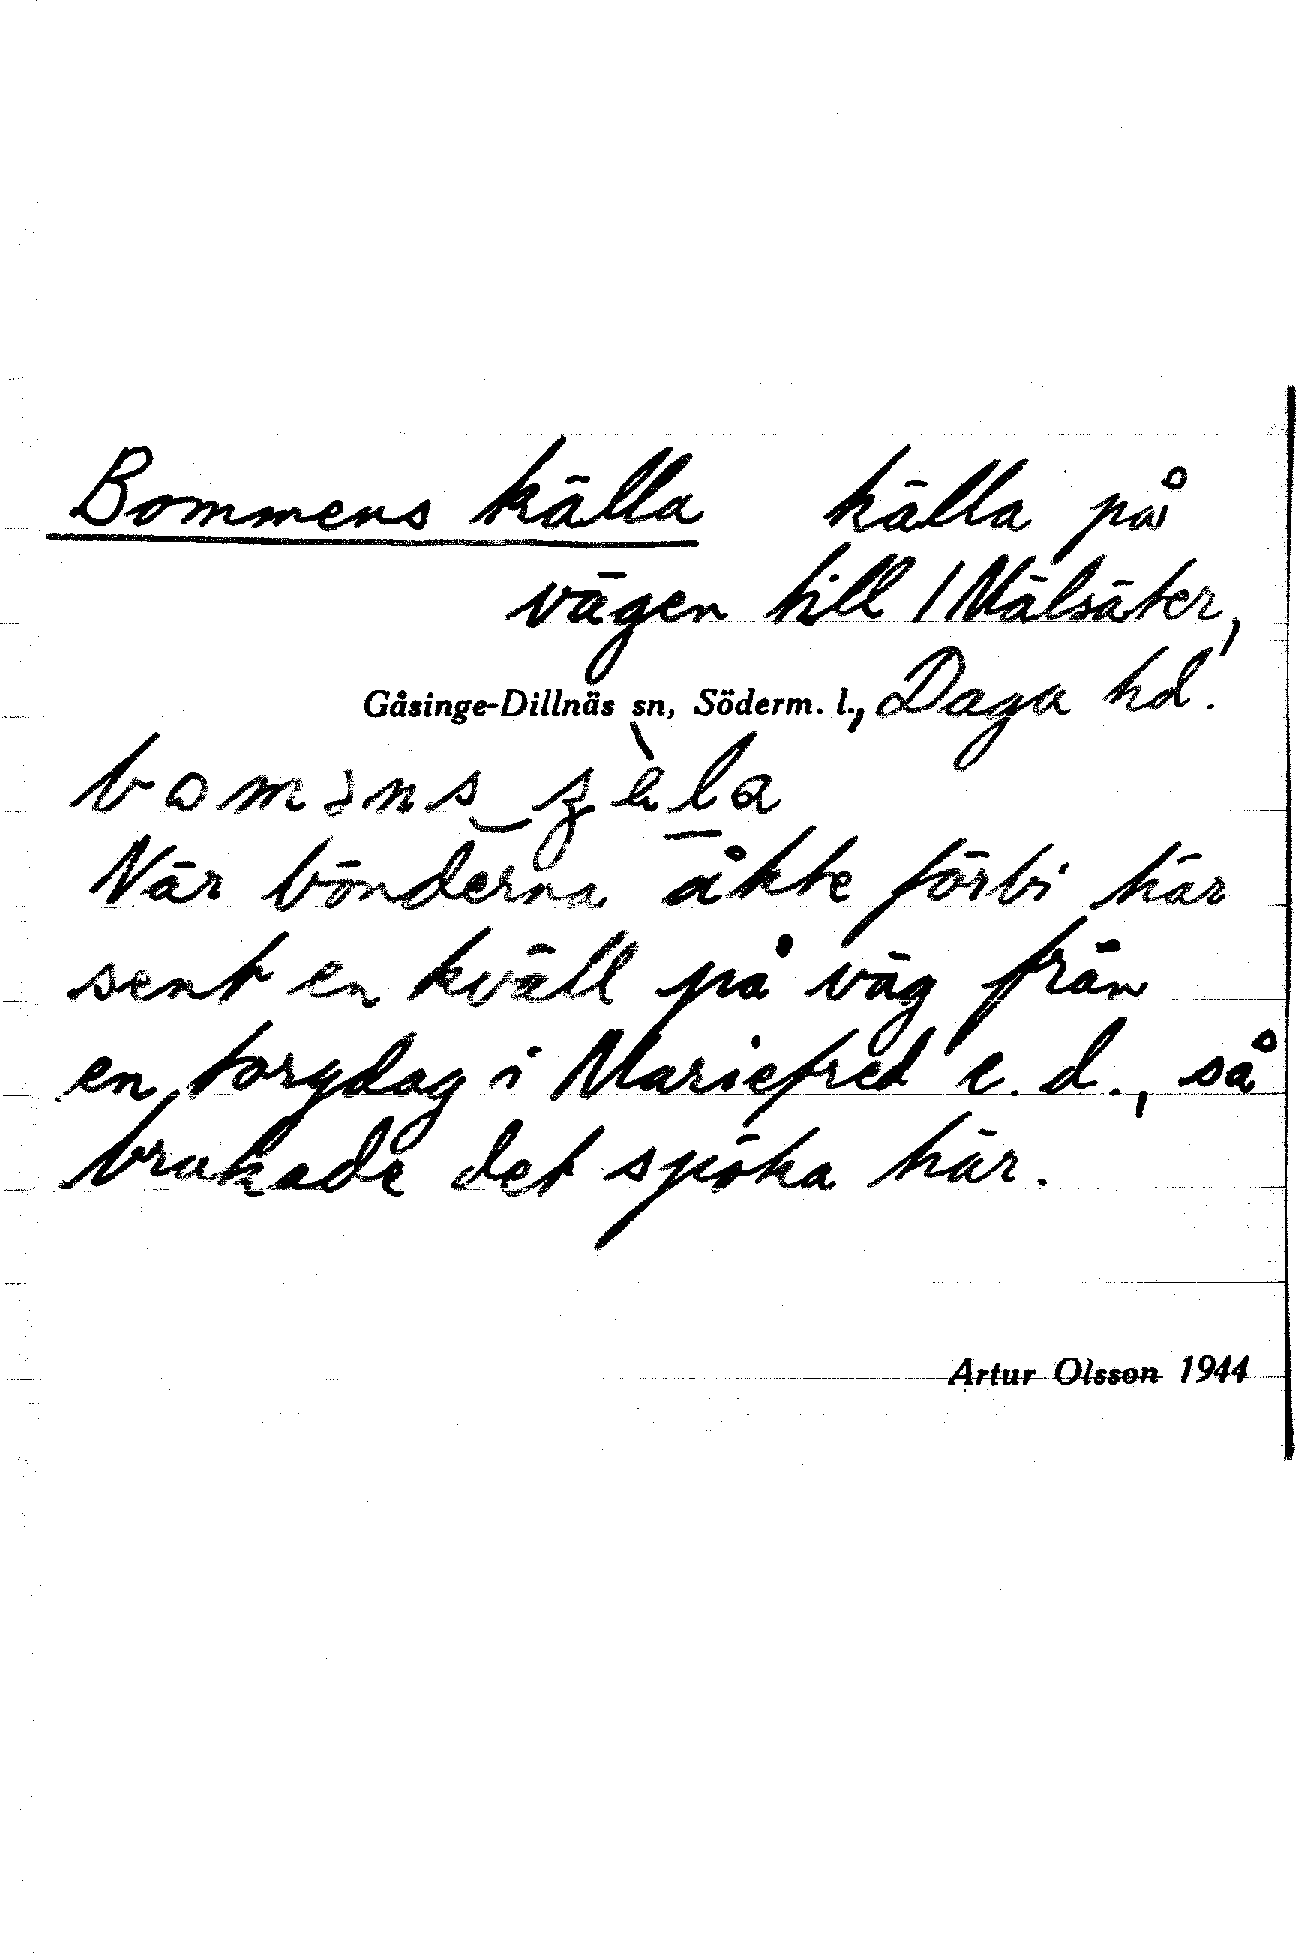 Bommens källa källa på
vägen till / Målsäter,
Gåsinge-Dillnäs sn, Söderm. l., Daga hd.
När bönderna åkte förbi här
sent en kväll på väg från
en torgdag i Mariefred e. d., så
brukade det spöka här.
Artur Olsson 1944